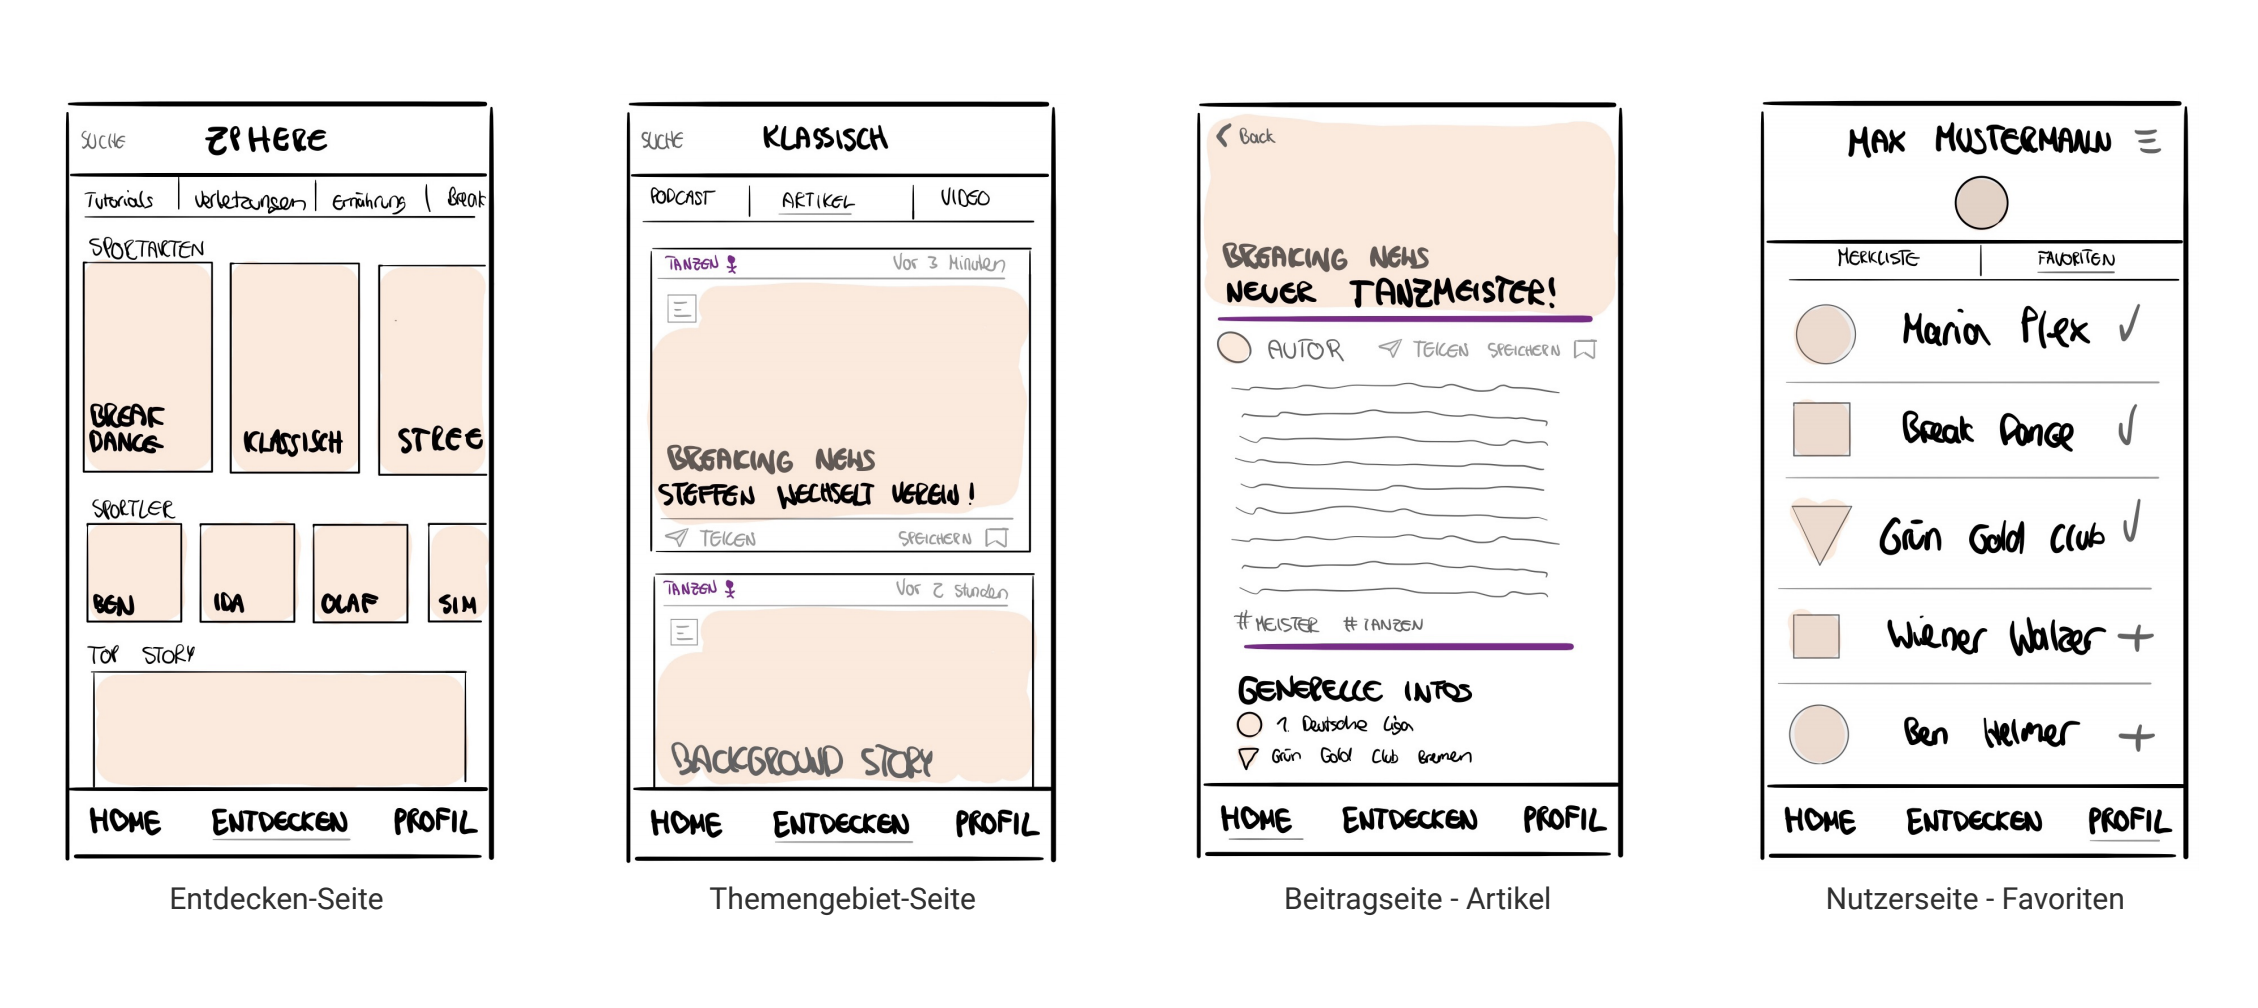 SUCHE ZPHERE
Tutorials Verletzungen Ernährung Break
SPORTARTEN
BREAK
DANCE
KLASSISCH
STREE
SPORTLER
BEN IDA OLAF SIM
TOP STORY
HOME ENTDECKEN PROFIL
Entdecken-Seite
SUCHE KLASSISCH
PODCAST ARTIKEL VIDEO
TANZEN Vor 3 Minuten
BREAKING NEWS
STEFFEN WECHSELT VEREIN!
TEILEN SPEICHERN
TANZEN Vor 2 Stunden
BACKGROUND STORY
HOME ENTDECKEN PROFIL
Themengebiet-Seite
Back
BREAKING NEWS
NEUER TANZMEISTER!
AUTOR TEILEN SPEICHERN
#MEISTER #TANZEN
GENERELLE INFOS
1. Deutsche Liga
Grün Gold Club Bremen
HOME ENTDECKEN PROFIL
Beitragseite - Artikel
MAX MUSTERMANN
MERKLISTE FAVORITEN
Maria Plex
Break Dance
Grün Gold Club
Wiener Walzer
Ben Helmer
HOME ENTDECKEN PROFIL
Nutzerseite - Favoriten